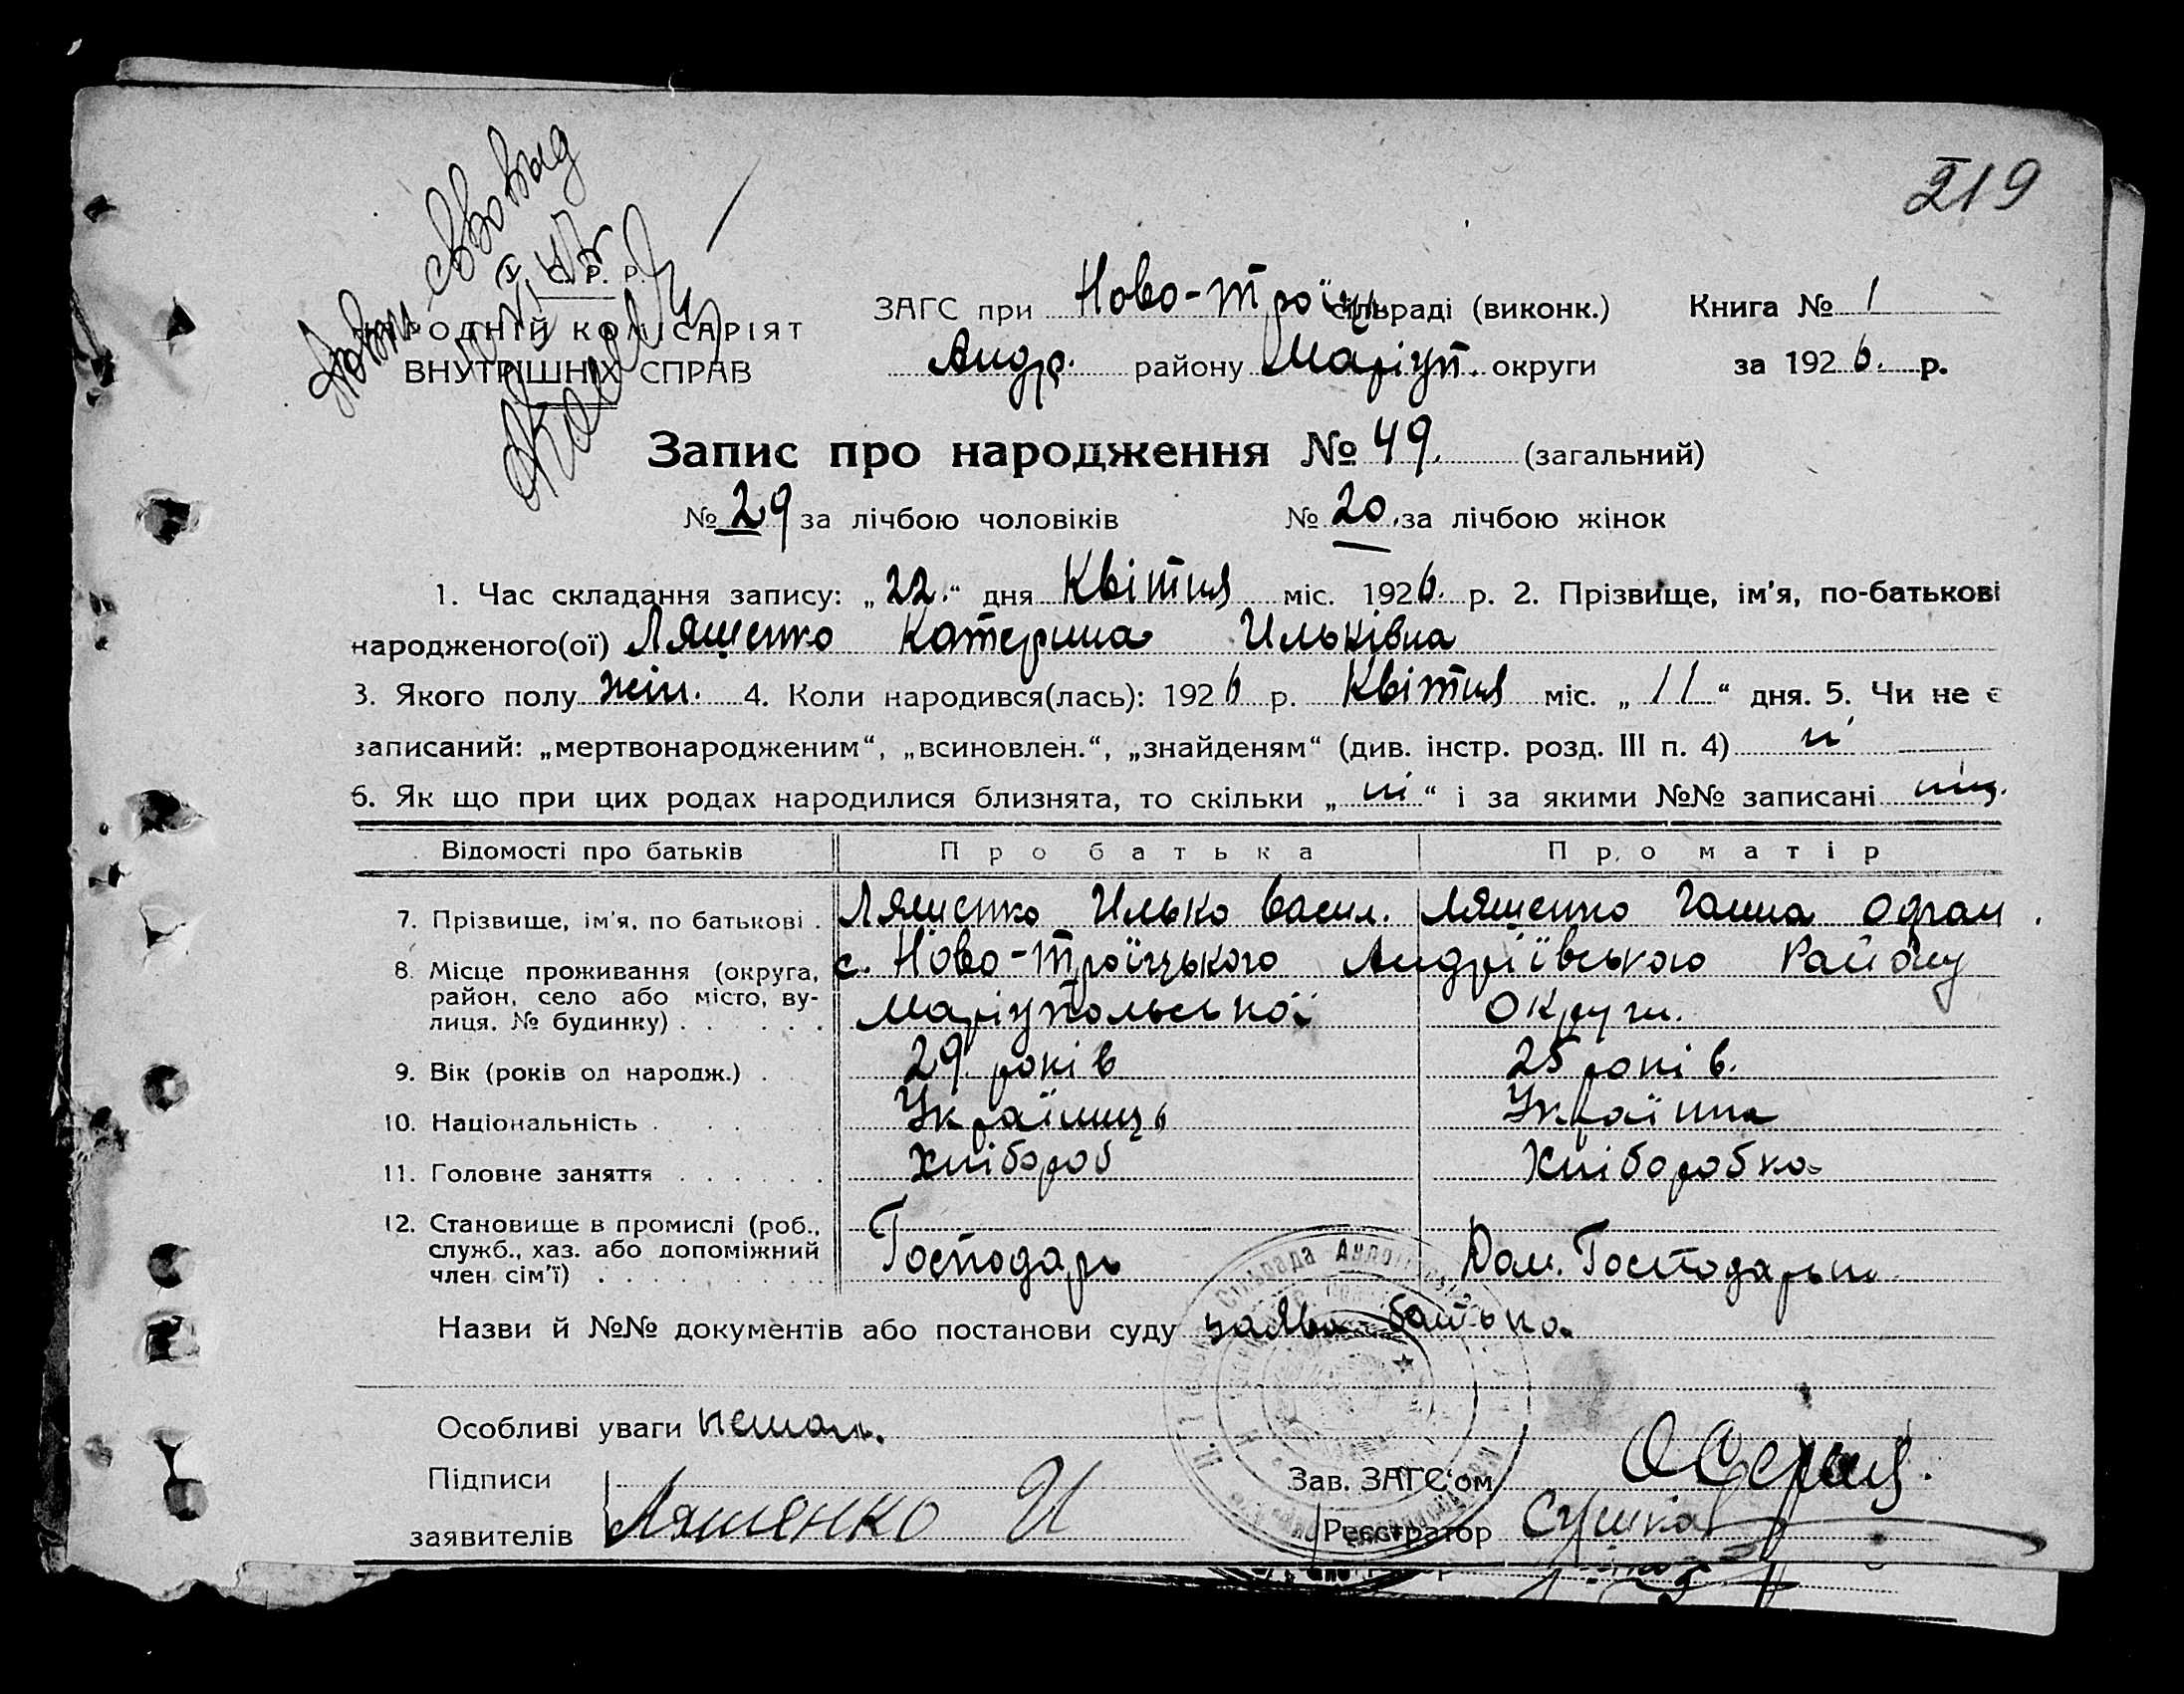 219
У. С. Р. Р.
НАРОДНІЙ КОМІСАРІЯТ
ВНУТРІШНІХ СПРАВ
ЗАГС при Ново-Троїць сільраді (виконк.) Книга № 1
Андр. району Маріуп. округи за 1926. р.
Запис про народження № 49. (загальний)
№ 29 за лічбою чоловіків № 20. за лічбою жінок
1. Час складання запису: „22.“ дня Квітня міс. 1926. р. 2. Прізвище, ім'я, по-батькові
народженого(ої) Лященко Катерина Ильківна
3. Якого полу жін. 4. Коли народився(лась): 1926 р. Квітня міс. „11“ дня. 5. Чи не є
записаний: „мертвонародженим“, „всиновлен.“, „знайденям“ (див. інстр. розд. III п. 4) ні
6. Як що при цих родах народилися близнята, то скільки „ні“ і за якими №№ записані
Відомості про батьків Про батька Про матір
7. Прізвище, ім'я, по батькові . Ляшенко Илько Васил. Ляшенко Ганна
8. Місце проживання (округа, район, село або місто, вулиця, № будинку) . . . . . с. Ново-Троїцького Андріївського Району
Маріупольської Округи.
9. Вік (років од народж.) . 29. років 25 років.
10. Національність . . . . Українець Українка
11. Головне заняття . . . . . . хлібороб Хліборобка
12. Становище в промислі (роб., служб., хаз. або допоміжний член сім'ї) . . . . . . . . . Господарь Дом. Господарка
Назви й №№ документів або постанови суду заява батька
Особливі уваги немає.
Підписи Зав. ЗАГС'ом
заявителів Ляшенко И Реєстратор